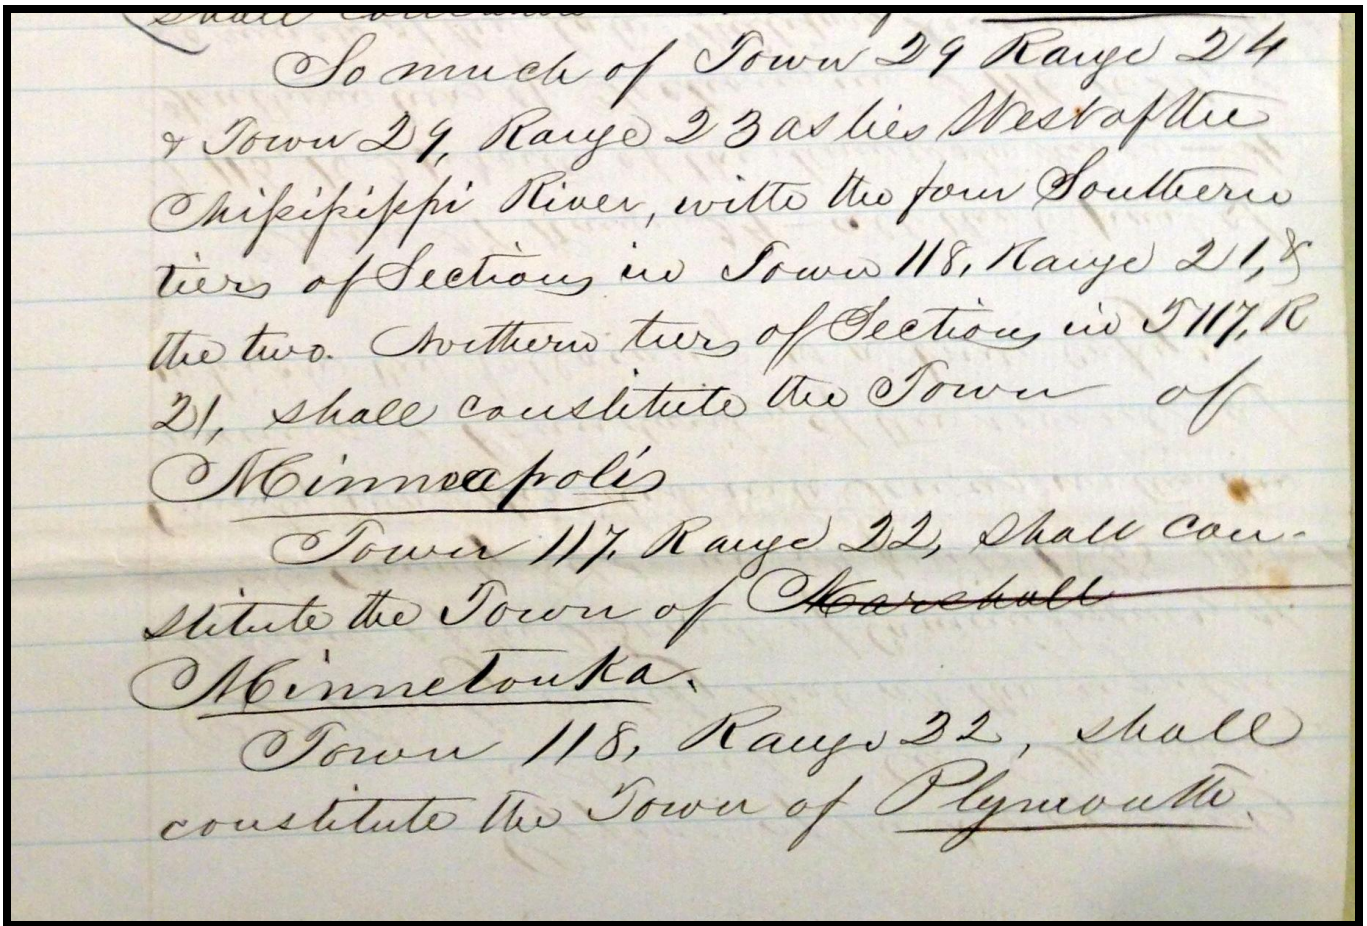 shall
So much of Town 29 Range 24
& Town 29, Range 23 as lies West of the
Missisippi River, with the four Southern
tiers of Sections in Town 118, Range 21, &
the two. Northern tiers of Sections in T 117, R
21, shall constitute the Town of
Minneapolis
Town 117, Range 22, shall con-
stitute the Town of Marshall
Minnetonka.
Town 118, Range 22, shall
constitute the Town of Plymouth.